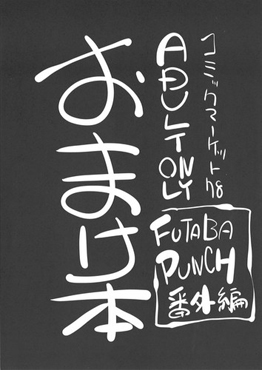 コミックマーケット78
ADULT ONLY
おまけ本
FUTABA
PUNCH
番外編